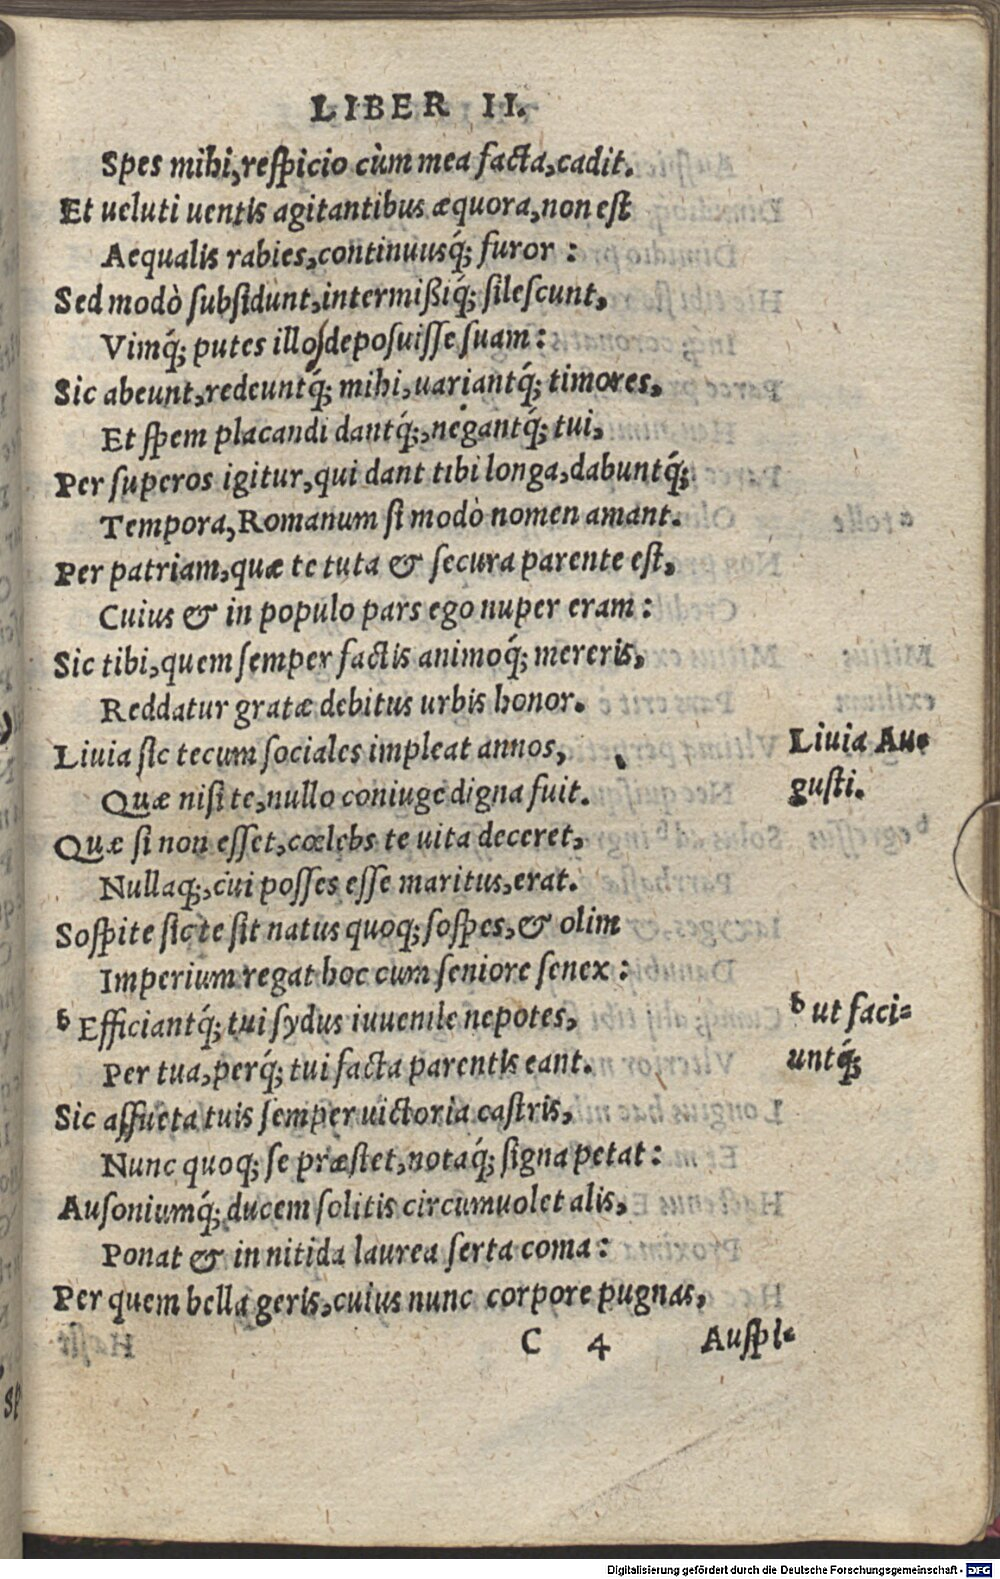 LIBER II.
Spes mihi, respicio cùm mea facta, cadit.
Et ueluti uentis agitantibus æquora, non est
Aequalis rabies, continuusq́; furor:
Sed modò subsidunt, intermißiq́; silescunt,
Vimq́; putes illos deposuisse suam:
Sic abeunt, redeuntq́; mihi, uariantq́; timores,
Et spem placandi dantq́;, negantq́; tui,
Per superos igitur, qui dant tibi longa, dabuntq́;
Tempora, Romanum si modò nomen amant.
Per patriam, quæ te tuta & secura parente est,
Cuius & in populo pars ego nuper eram:
Sic tibi, quem semper factis animoq́; mereris,
Reddatur gratæ debitus urbis honor.
Liuia sic tecum sociales impleat annos,
Liuia Au-
Quæ nisi te, nullo coniuge digna fuit.
gusti.
Quæ si non esset, cœlebs te uita deceret,
Nullaq;, cui posses esse maritus, erat.
Sospite sic te sit natus quoq; sospes, & olim
Imperium regat hoc cum seniore senex:
b Efficiantq́; tui sydus iuuenile nepotes,
b ut faci-
Per tua, perq́; tui facta parentis eant.
untq́;
Sic assueta tuis semper uictoria castris,
Nunc quoq; se præstet, notaq́; signa petat:
Ausoniumq́; ducem solitis circumuolet alis,
Ponat & in nitida laurea serta coma:
Per quem bella geris, cuius nunc corpore pugnas,
C 4
Auspi-
Digitalisierung gefördert durch die Deutsche Forschungsgemeinschaft - DFG